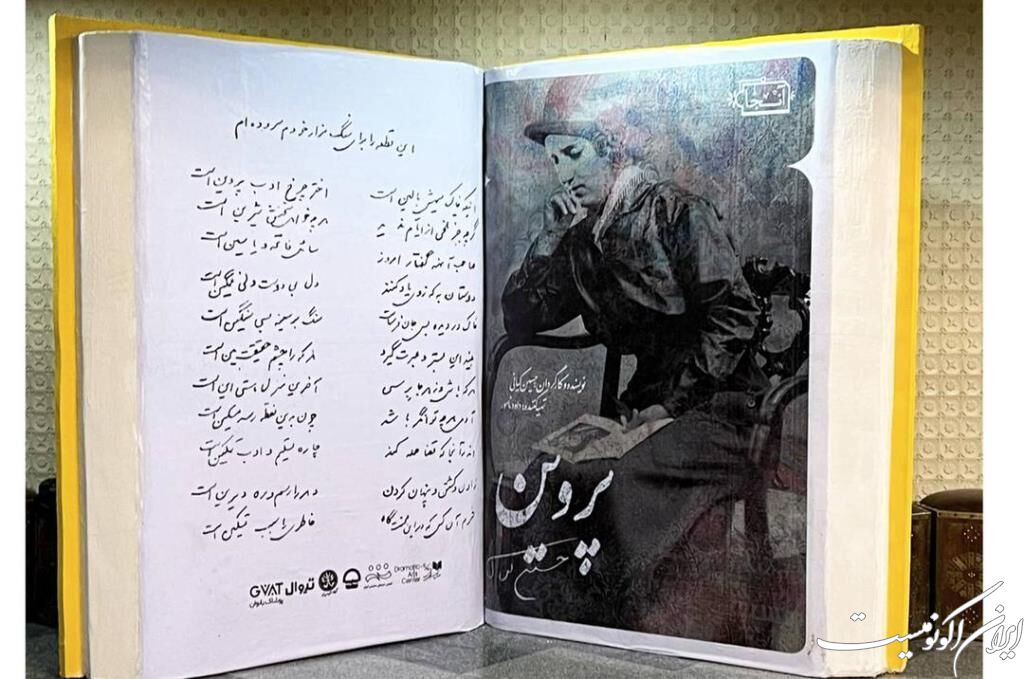 این قطعه را برای سنگ مزار خودم سروده ام
اینکه خاک سیهش بالین است اختر چرخ ادب پروین است
گرچه جز تلخی از ایام ندید هر چه خواهی سخنش شیرین است
صاحب آنهمه گفتار امروز سائل فاتحه و یاسین است
دوستان به که ز وی یاد کنند دل بی دوست دلی غمگین است
خاک در دیده بسی جان فرساست سنگ بر سینه بسی سنگین است
بیند این بستر و عبرت گیرد هر که را چشم حقیقت بین است
هر که باشی و ز هر جا برسی آخرین منزل هستی این است
آدمی هر چه توانگر باشد چون بدین نقطه رسد مسکین است
اندر آنجا که قضا حمله کند چاره تسلیم و ادب تمکین است
زادن و کشتن و پنهان کردن دهر را رسم و ره دیرین است
خرم آن کس که در این محنت گاه خاطری را سبب تسکین است
Dramatic Arts Center
تروال GVAT
نویسنده و کارگردان: حسین کیانی
تهیه‌کننده:
پروین
ایران اکونومیست